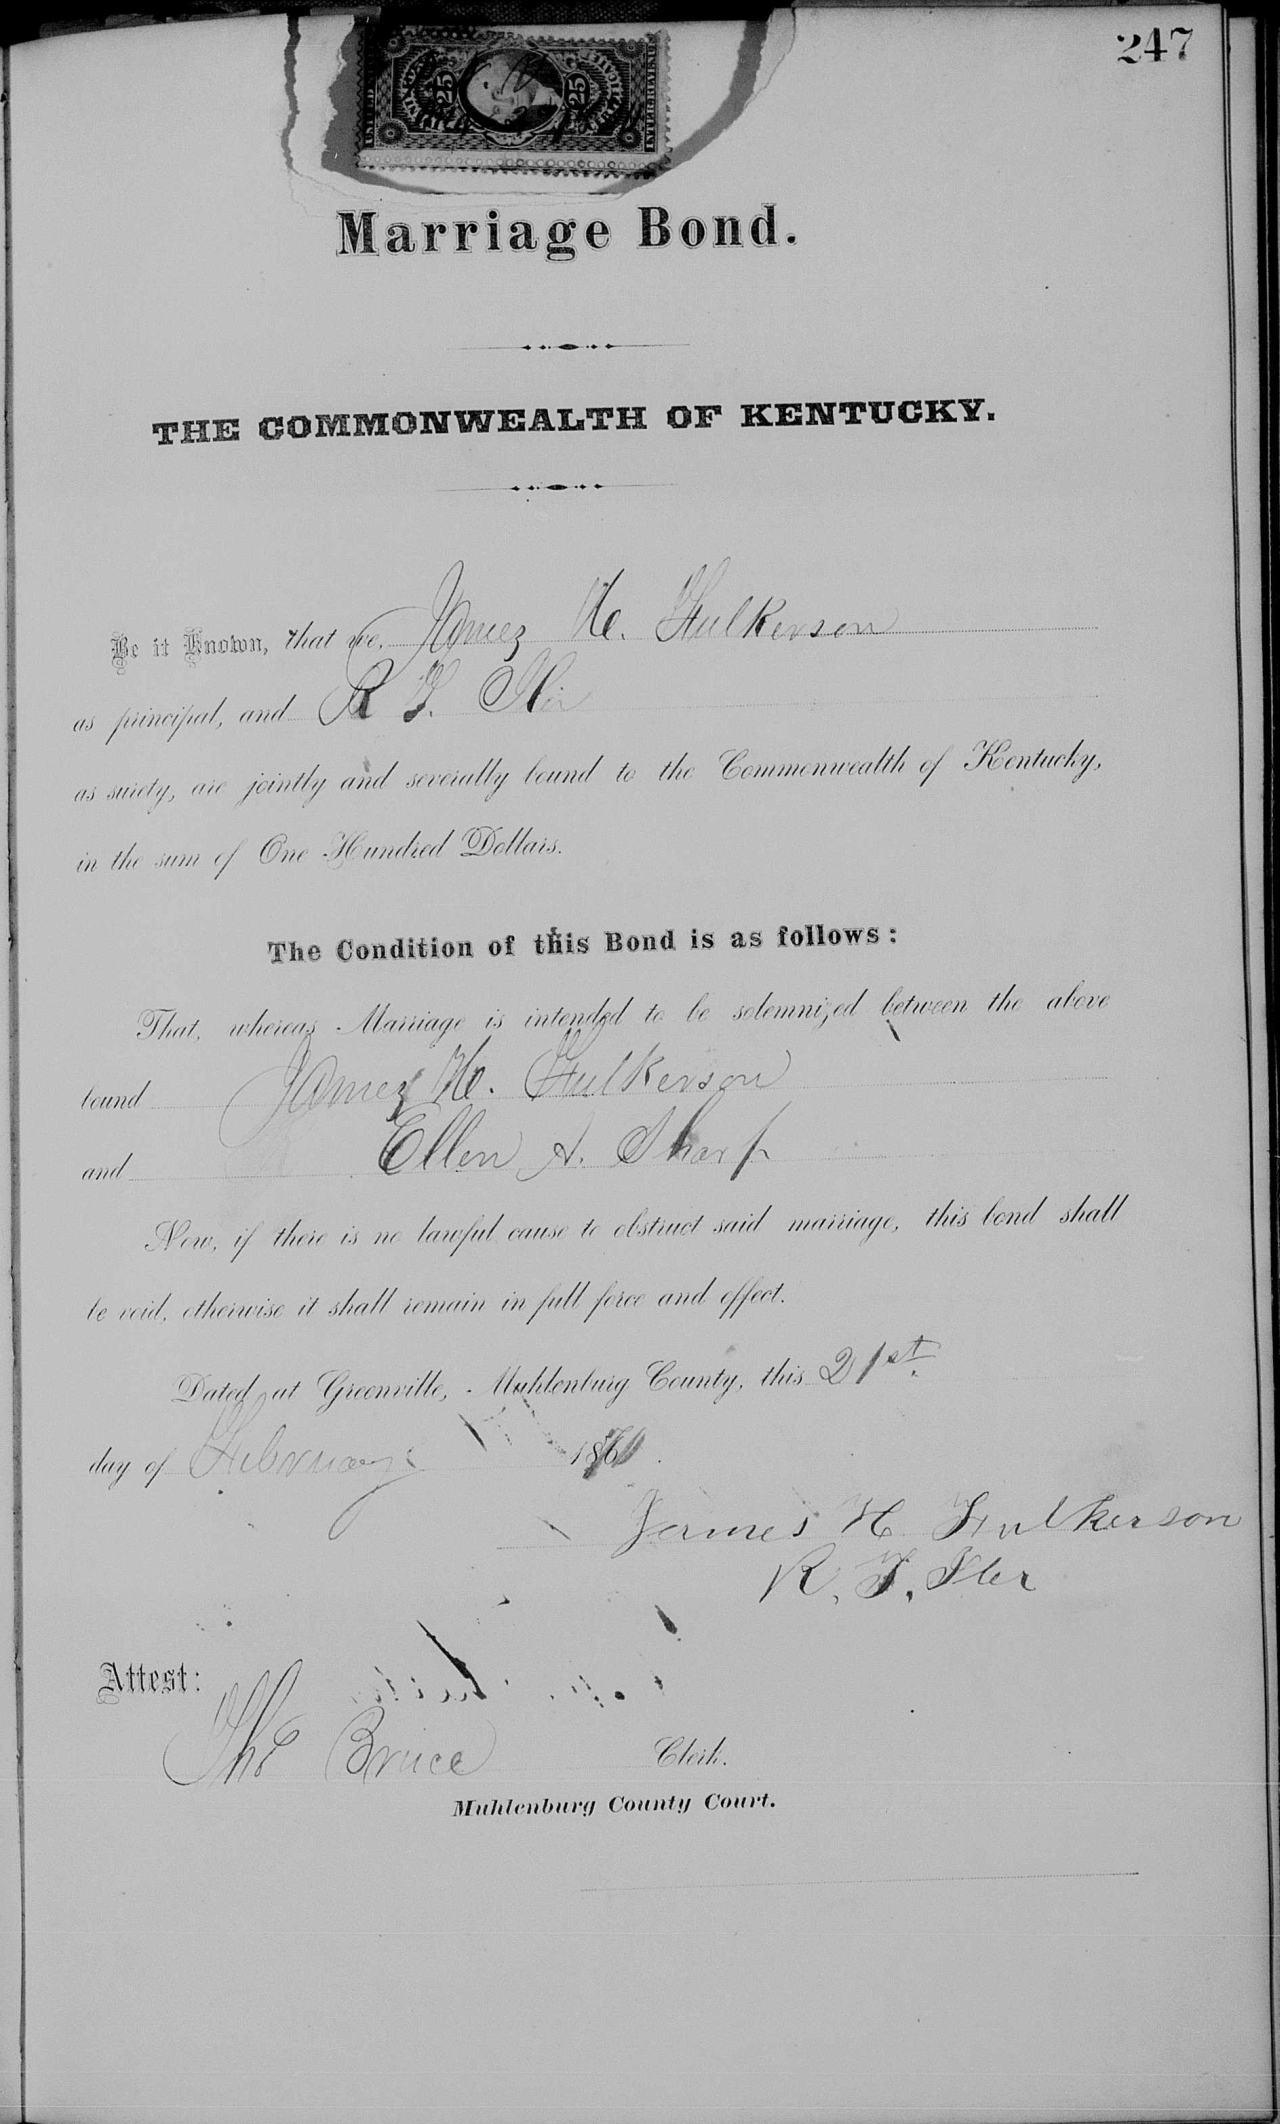 247
25 25
Marriage Bond.
THE COMMONWEALTH OF KENTUCKY.
Be it Known, that we, James H. Fulkerson
as principal, and R F. Iler
as surety, are jointly and severally bound to the Commonwealth of Kentucky,
in the sum of One Hundred Dollars.
The Condition of this Bond is as follows:
That, whereas Marriage is intended to be solemnized between the above
bound James H. Fulkerson
and Ellen A. Sharp
Now, if there is no lawful cause to obstruct said marriage, this bond shall
be void, otherwise it shall remain in full force and effect.
Dated at Greenville, Muhlenburg County, this 21st.
day of February
James H Fulkerson
R. F. Iler
Attest:
Tho Bruce Clerk.
Muhlenburg County Court.